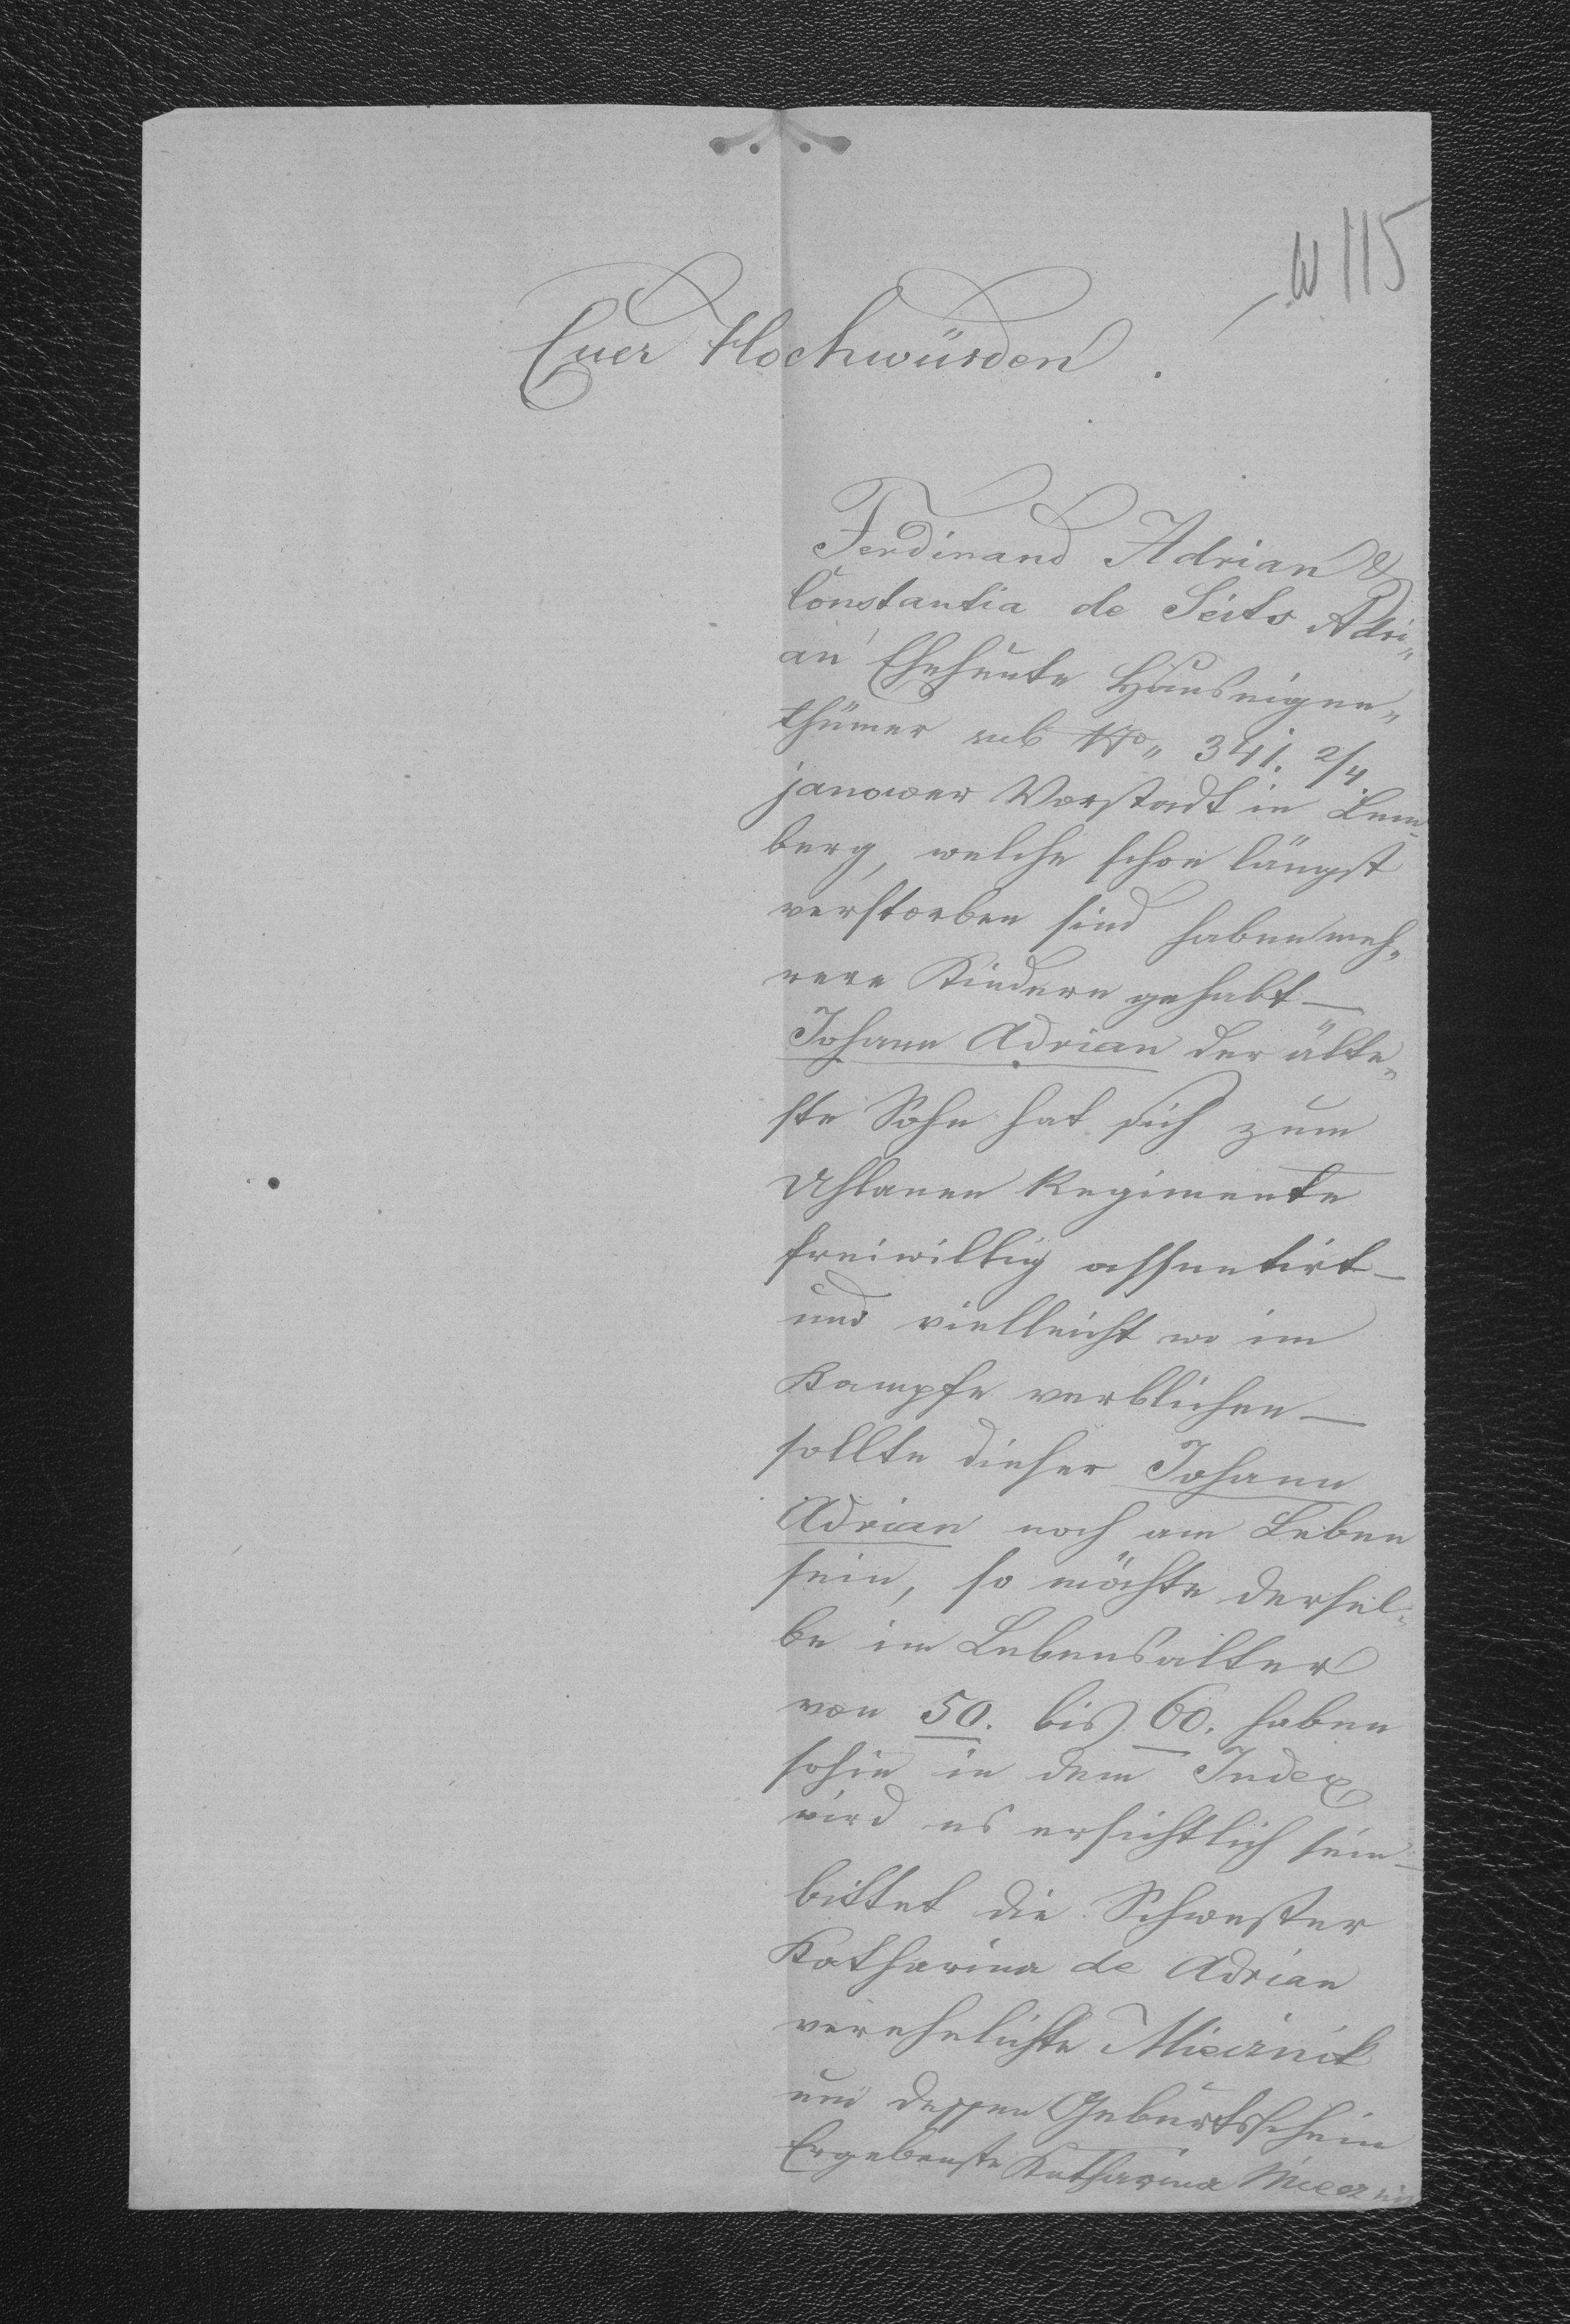 W 115
Euer Hochwürden.
Ferdinand Adrian &
Constantia de Seits Adri„
an Eheleute Hauseigen„
thümer sub No„ 341. 2/4
janower Vorstadt in Lem„
berg, welche schon längst
verstorben sind haben meh„
rere Kindern gehabt —
Johann Adrian der älte„
ste Sohn hat sich zum
Uhlanen Regimente
freiwillig assentirt —
und vielleicht wo im
Kampfe verblichen —
sollte dieser Johann
Adrian noch am Leben
sein, so möchte dersel„
be im Lebensalter
von 50. bis 60. haben
sohin in dem Index
wird es ersichtlich sein —
bittet die Schwester
Katharina de Adrian
verehelichte Miecznik
um dessen Geburtsschein
Ergebenste Katharina